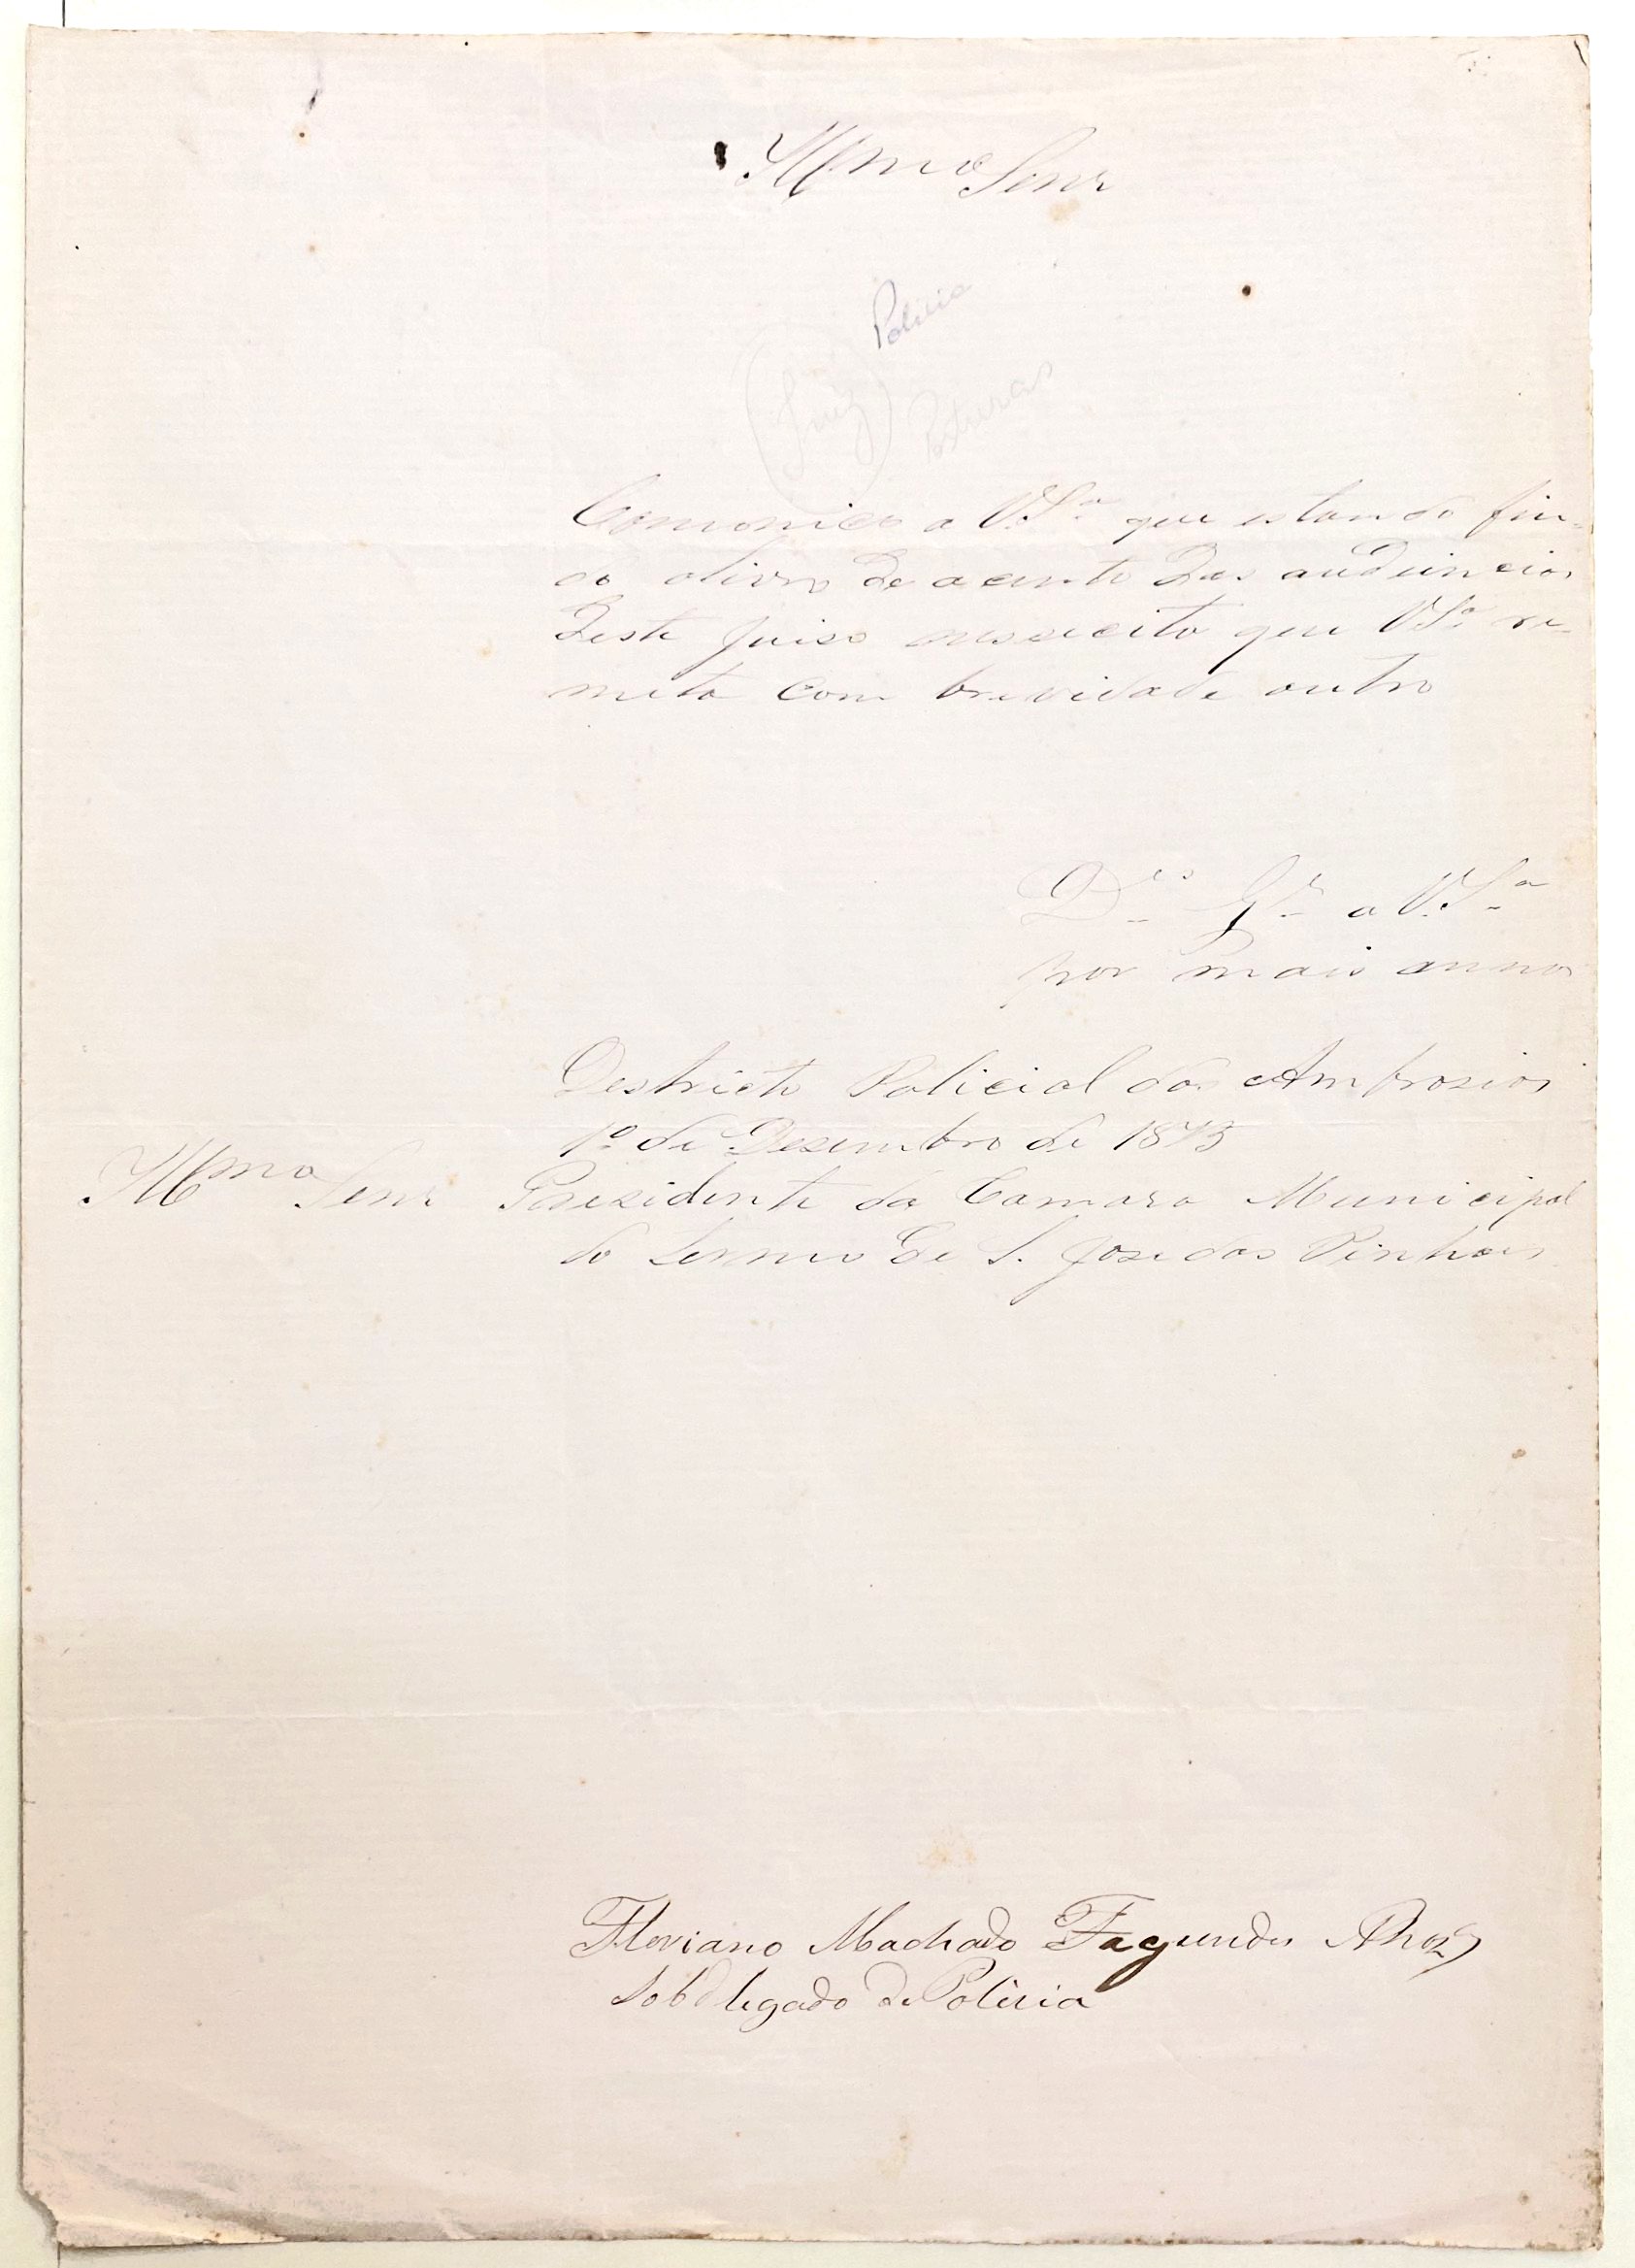 Illmo Senr
Policia
(Juiz) Posturas
Comonico a V.Sa. que estando fin-
do olivro de acento das audiencias
deste juiso nessecita que VSa. re-
meta com brevidade outro
Des. Gr. a V.Sa.
por mais annos
Destricto Policial dos Ambrosios
1º de Desembro de 1875
Illmo Senr Prezidente da Camara Municipal
do Termo de S. Jose dos Pinhaes
Floriano Machado Fagundes
Sobdlegado de Policia